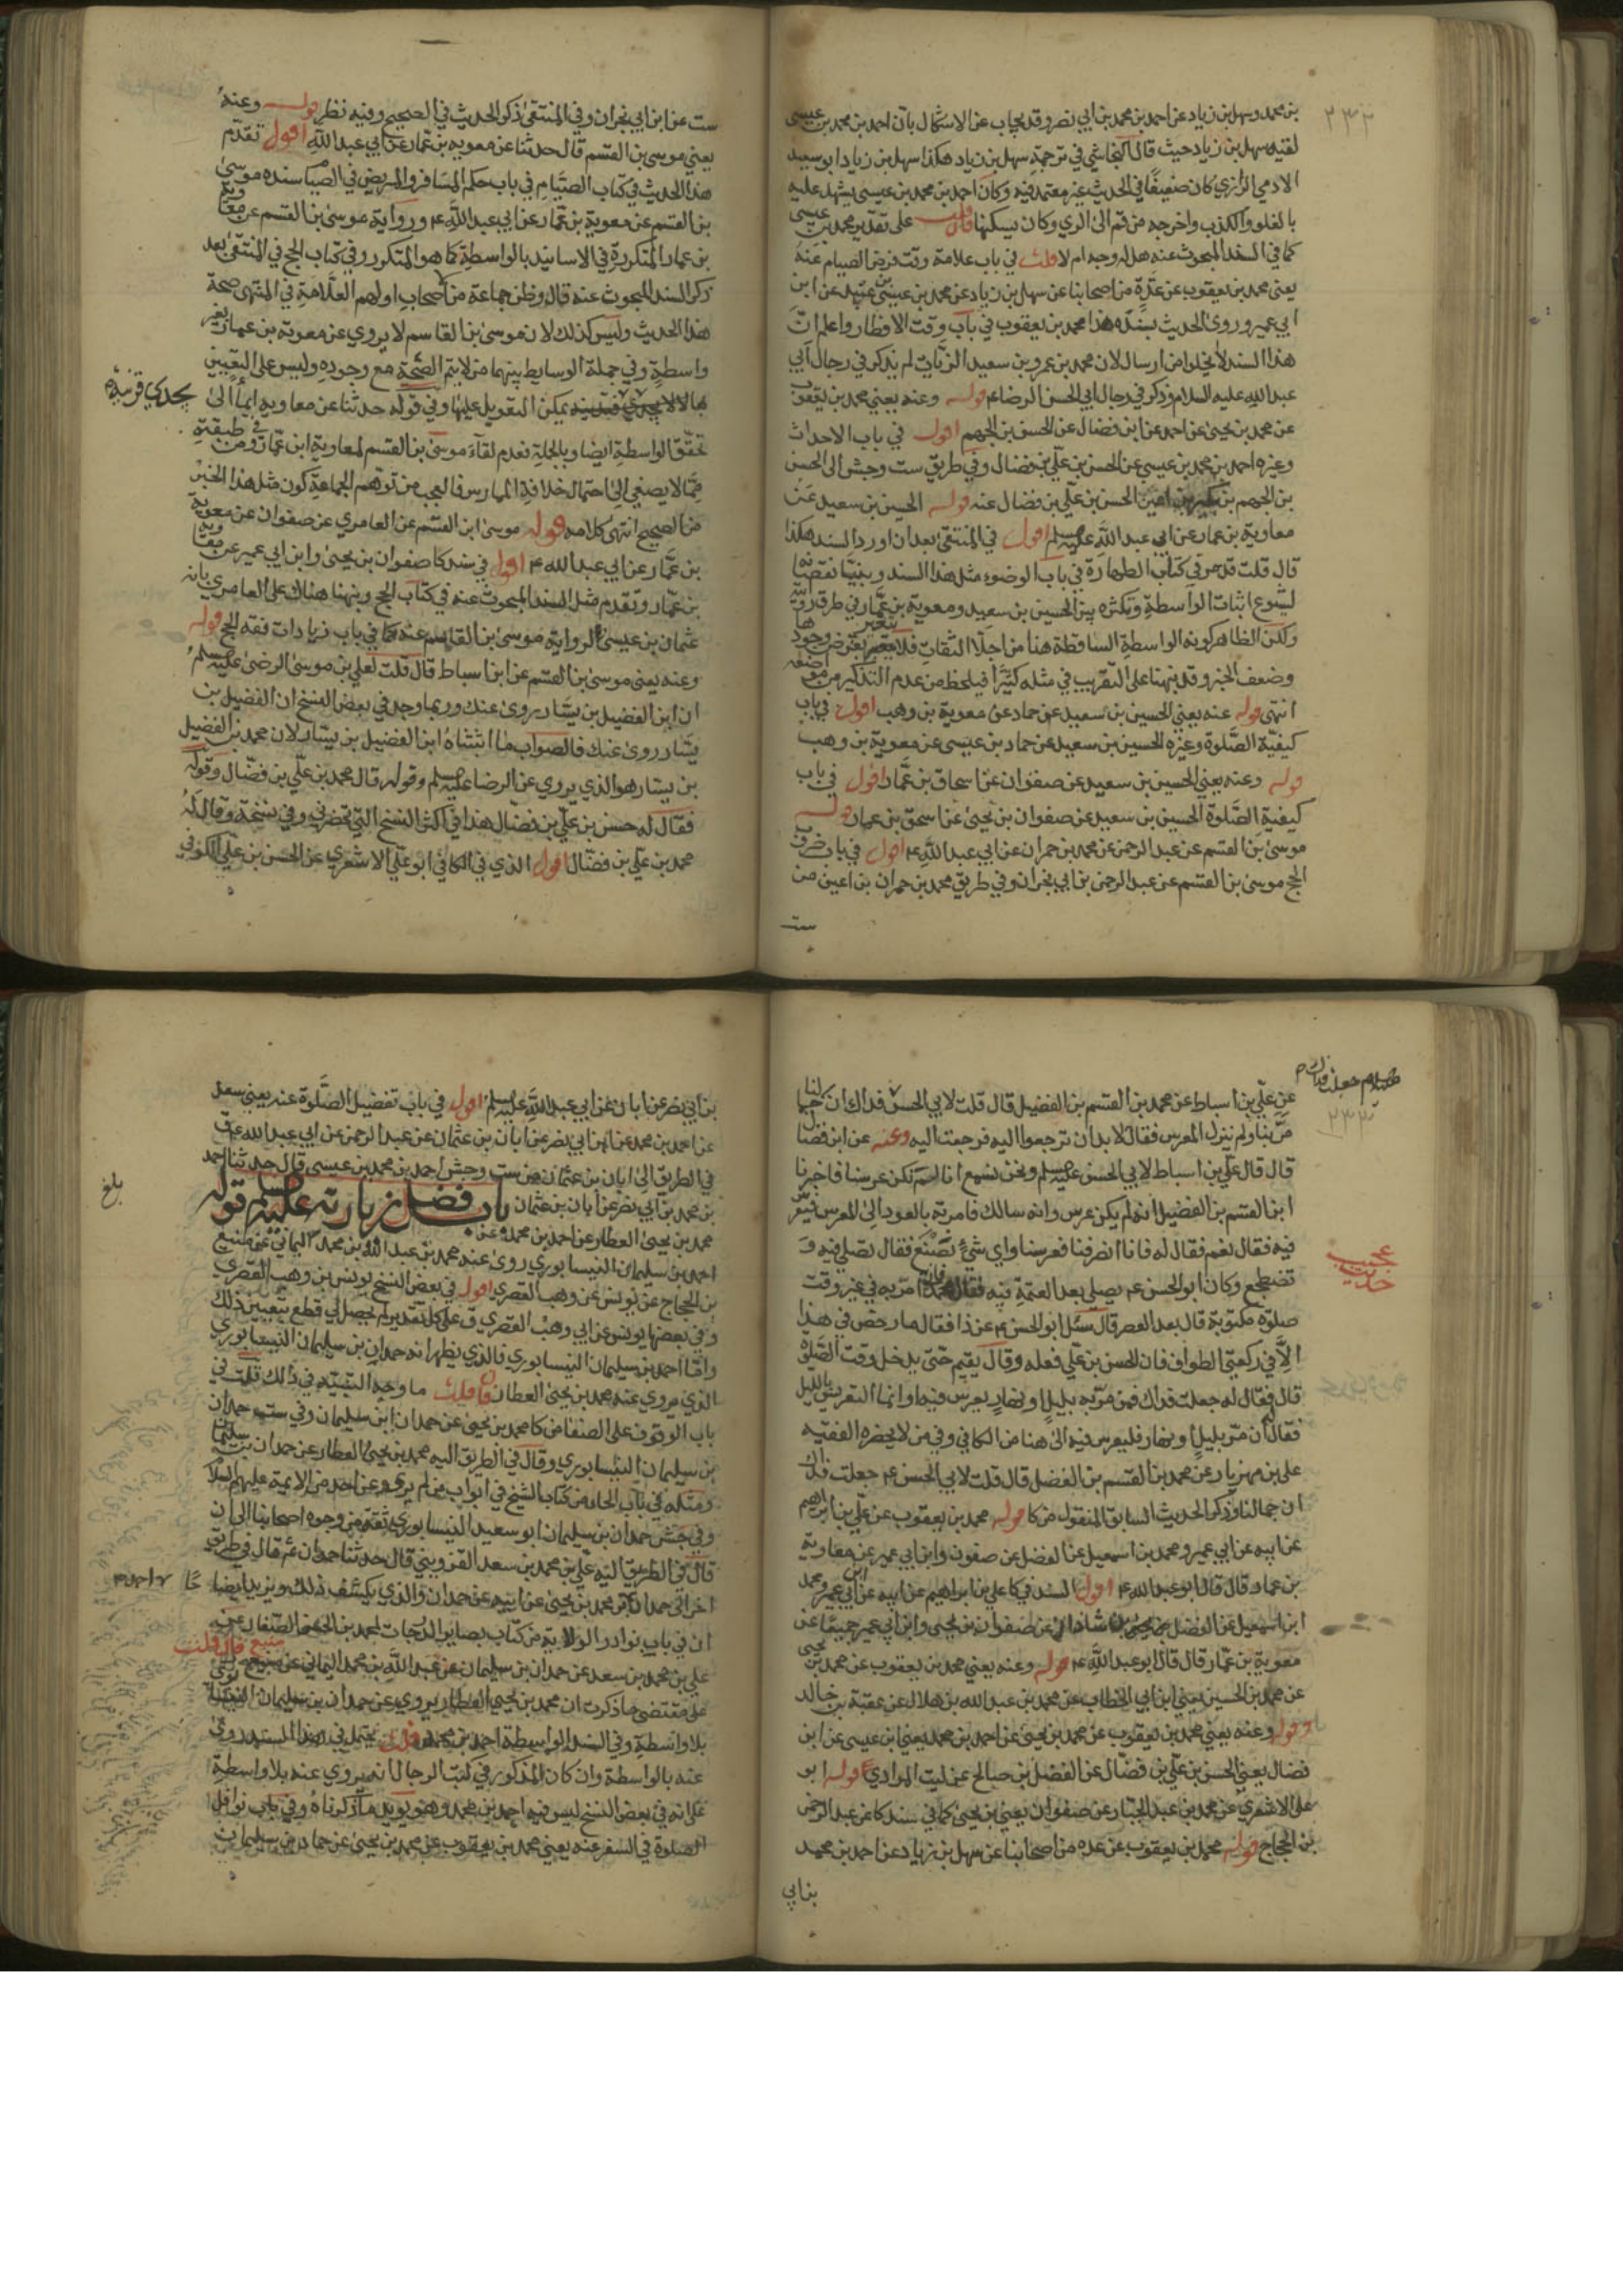 ٢٣٢
بن محمد وسهل بن زياد عن احمد بن محمد بن ابي نصر وقد يجاب عن الاشكال بان احمد بن محمد بن عيسى
لقيه سهل بن زياد حيث قال النجاشي في ترجمة سهل بن زياد هكذا سهل بن زياد ابو سعيد
الادمي الرازي كان ضعيفًا في الحديث غير معتمد فيه وكان احمد بن محمد بن عيسى يشهد عليه
بالغلو والكذب واخرجه من قم الى الري وكان يسكنها فان قلت على تقدير محمد بن عيسى
كما في السند المبحوث عنه هل له وجه ام لا قلت في باب علامة وقت فرض الصيام عنه
يعني محمد بن يعقوب عن عدة من اصحابنا عن سهل بن زياد عن محمد بن عيسى بن عبيد عن ابن
ابي عمير وروى الحديث بسنده هذا محمد بن يعقوب في باب وقت الافطار واعلم انّ
هذا السند لا يخلوا من ارسال لان محمد بن عمرو بن سعيد الزيّات لم يذكر في رجال ابي
عبد الله عليه السلام وذكر في رجال ابي الحسن الرضا ع قوله وعنه يعني محمد بن يعقوب
عن محمد بن يحيى عن احمد عن ابن فضال عن الحسن بن الجهم اقول في باب الاحداث
وغيره احمد بن محمد بن عيسى عن الحسن بن علي بن فضال وفي طريق ست وجش الى الحسن
بن الجهم بن بكير بن اعين الحسن بن علي بن فضال عنه قوله الحسين بن سعيد عن
معاوية بن عمار عن ابي عبد الله عليه السلم اقول في المنتقى بعد ان اورد السند هكذا
قال قلت قد مر في كتاب الطهارة في باب الوضوء مثل هذا السند وبينا نقصه
لشيوع اثبات الواسطة وتكثره بين الحسين بن سعيد ومعوية بن عمار في طرق روايته
ولكن الظاهر كون الواسطة الساقطة هنا من اجلّا الثقات فلا يتغير بفرض وجودها
وضعف الخبر وقد نبهنا على التقريب في مثله كثيرًا فيلحظ من عدم التذكير من مواضعه
انتهى قوله عنه يعني الحسين بن سعيد عن حماد عن معوية بن وهب اقول في باب
كيفيّة الصّلوة وغيره الحسين بن سعيد عن حماد بن عيسى عن معوية بن وهب
قوله وعنه يعني الحسين بن سعيد عن صفوان عن اسحاق بن عمّار اقول في باب
كيفية الصّلوة الحسين بن سعيد عن صفوان بن يحيى عن اسحق بن عمار قوله
موسى بن القسم عن عبد الرحمن عن محمد بن حمران عن ابي عبد الله ع اقول في باب ضروب
الحج موسى بن القسم عن عبد الرحمن بن ابي نجران وفي طريق محمد بن حمران بن اعين من
ست
ست عن ابن ابي نجران وفي المنتقى ذكر الحديث في الصحيح وفيه نظر قوله وعنه
يعني موسى بن القسم قال حدثنا عن معويه بن عمّار عن ابي عبد الله اقول تقدّم
هذا الحديث في كتاب الصّيام في باب حكم المسافر والمريض في الصيام سنده موسى
بن القسم عن معوية بن عمّار عن ابي عبد الله ع ورواية موسى بن القسم عن معوية
بن عمار المتكررة في الاسانيد بالواسطة كما هو المتكرر وفي كتاب الحج في المنتقى بعد
ذكر السند المبحوث عنه قال وظن جماعة من الاصحاب اولهم العلّامة في المنتهى صحة
هذا الحديث وليس كذلك لان موسى بن القاسم لا يروي عن معوية بن عمار بغير
واسطة وفي جملة الوسايط بينهما من لا يتم الصّحّة مع وجوده وليس على التعيين
يمكن التعويل عليها وفي قوله حدثنا عن معاويه ايماء الى
بحدي قرينة
تحقّق الواسطة ايضا وبالجملة فعدم لقاء موسى بن القسم لمعاوية ابن عمار في طبقته
ممّا لا يصغي الى احتمال خلافه الممارس فالعجب من توهم الجماعة كون مثل هذا الخبر
من الصحيح انتهى كلامه قوله موسى ابن القسم عن العامري عن صفوان عن معوية
بن عمّار عن ابي عبد الله ع اقول في سند كا صفوان بن يحيى وابن ابي عمير عن معوية
بن عمّار وتقدم مثل السند المبحوث عنه في كتاب الحج ونبهنا هناك على العامري بانه
عثمان بن عيسى لرواية موسى بن القاسم عنه كما في باب زيادات فقه الحج قوله
وعنه يعني موسى بن القسم عن ابن اسباط قال قلت لعلي بن موسى الرضى عليه السلم
ان ابن الفضيل بن يسار روى عنك وربما وجد في بعض النسخ ان الفضيل بن
يسار روى عنك فالصواب ما اثبتناه ابن الفضيل بن يسار لان محمد بن الفضيل
بن يسار هو الذي يروي عن الرضا عليه السلم وقوله قال محمد بن علي بن فضّال وقوله
فقال له حسن بن علي بن فضّال هذا في اكثر النسخ التي تحضرني وفي نسخة وقال له
محمد بن علي بن فضّال اقول الذي في الكافي ابو علي الاشعري عن الحسن بن علي الكوفي
٢٣٣
عن علي بن اسباط عن محمد بن القسم بن الفضيل قال قلت لابي الحسن فداك ان جمالنا
مرّ بنا ولم ينزل المعرس فقال لا بد ان ترجعوا اليه فرجعت اليه وعنه عن ابن فضال
قال قال علي بن اسباط لابي الحسن عليه السلم ونحن نسمع انا لم نكن عرسنا فاخبرنا
ابن القسم بن الفضيل انه لم يكن عرس وانه سالك فامرته بالعود الى المعرس فيعرّس
فيه فقال نعم فقال له فانا انصرفنا فعرسنا واي شيء نصنع فقال تصلي فيه و
تضطجع وكان ابو الحسن ع يصلي بعد العتمة فيه فقال محمد فان مرّ به في غير وقت
عجيب
حديث
صلوة مكتوبة قال بعد العصر قال سئل ابو الحسن ع عن ذا فقال ما رخص في هذا
الا في ركعتي الطواف فان الحسن بن علي فعله وقال يقيم حتى يدخل وقت الصّلوة
قال فقال له جعلت فداك فمن مرّ به بليل او نهار يعرس فيه او انما التعريس بالليل
فقال ان مرّ بليل او نهار فليعرس فيه الى هنا من الكافي وفي من لا يحضره الفقيه
علي بن مهزيار عن محمد بن القسم بن الفضل قال قلت لابي الحسن ع جعلت فداك
ان جمالنا وذكر الحديث السابق المنقول من كا قوله محمد بن يعقوب عن علي بن ابراهيم
عن ابيه عن ابي عمير ومحمد بن اسمعيل عن الفضل عن صفون وابن ابي عمير عن معاوية
بن عمار قال قال ابو عبد الله ع اقول السند في كا علي بن ابراهيم عن ابيه عن ابن ابي عمير ومحمد
ابن اسمعيل عن الفضل بن شاذان عن صفوان بن يحيى وابن ابي عمير جميعًا عن
معوية بن عمّار قال قال ابو عبد الله ع قوله وعنه يعني محمد بن يعقوب عن محمد بن يحيى
عن محمد بن الحسين يعني ابن ابي الخطاب عن محمد بن عبد الله بن هلال عن عقبة بن خالد
وقوله وعنه يعني محمد بن يعقوب عن محمد بن يحيى عن احمد بن محمد يعني ابن عيسى عن ابن
فضال يعني الحسن بن علي بن فضّال عن الفضل بن صالح عن ليث المرادي قوله ابو
علي الاشعري عن محمد بن عبد الجبّار عن صفوان يعني بن يحيى كما في سند كا عن عبد الرحمن
بن الحجاج قوله محمد بن يعقوب عن عده من اصحابنا عن سهل بن زياد عن احمد بن محمد
بن ابي
بن ابي نصر عن ابان عن ابي عبد الله عليه السلم اقول في باب تفضيل الصّلوة عنه يعني سعد
عن احمد بن محمد عن ابن ابي نصر عن ابان بن عثمان عن عبد الرحمن عن ابي عبد الله ع وفي
في الطريق الى ابان بن عثمان من ست وجش احمد بن محمد بن عيسى قال حدثنا احمد
بلغ
بن محمد بن ابي نصر عن ابان بن عثمان باب فضل زيارته عليه السلم قوله
محمد بن يحيى العطار عن احمد بن محمد وعن
احمد بن سليمان النيسابوري روى عنه محمد بن عبد الله بن محمد اليماني عن منيع
بن الحجاج عن يونس عن وهب القصري اقول في بعض النسخ يونس بن وهب القصري
وفي بعضها يونس عن ابي وهب القصري وعلى كل تقدير لم يحصل لي قطع بتعيين ذلك
وامّا احمد بن سليمان النيسابوري فالذي يظهر انه حمدان بن سليمان النيسابوري
الذي يروي عنه محمد بن يحيى العطار فان قلت ما وجه التنبيه في ذلك قلت في
باب الوقوف على الصفا من كا محمد بن يحيى عن حمدان ابن سليمان وفي ست حمدان
بن سليمان النيسابوري وقال في الطريق اليه محمد بن يحيى العطار عن حمدان بن سليمان
ومثله في باب الحاء من كتاب الشيخ في ابواب من لم يرو عن احد من الائمة عليهم السلام
وفي جش حمدان بن سليمان ابو سعيد النيسابوري ثقة من وجوه اصحابنا الى ان
قال في الطريق اليه علي بن محمد بن سعد القزويني قال حدثنا حمدان ثم قال في طريق
اخر الى حمدان محمد بن يحيى عن ابيه عن حمدان والذي يكشف ذلك ويزيد ايضاحا
ان في باب نوادر الولاية من كتاب بصاير الدرجات لمحمد بن الحسن الصّفار عن
علي بن محمد بن سعد عن حمدان بن سليمان عن عبد الله بن محمد اليماني عن منيع فان قلت
على مقتضى ما ذكرت ان محمد بن يحيى العطار يروي عن حمدان بن سليمان
بلا واسطة وفي السند الواسطة احمد بن محمد قلت يحتمل في هذا السند روى
عنه بالواسطة وان كان المذكور في كتب الرجال انه يروي عنه بلا واسطة
على انه في بعض النسخ ليس فيه احمد بن محمد وهو يويد ما ذكرناه وفي باب نوافل
الصلوة في السفر عنه يعني محمد بن يعقوب عن محمد بن يحيى عن حمدان بن سليمان